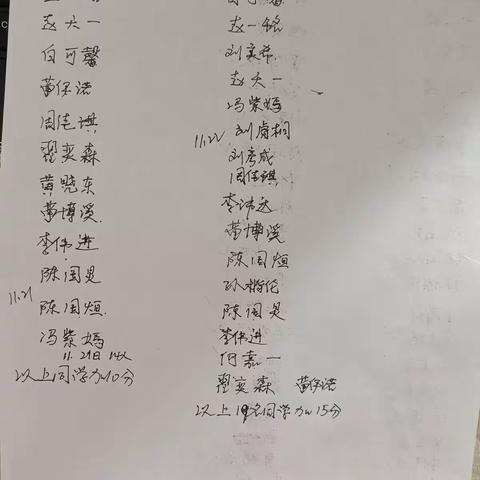 赵天一
白可馨
黄伊诺
周佳琪
翟奕森
黄晓东
董博溪
李伟进
陈国是
11.21
陈国烜
冯紫嫣
11.21日 14人
以上同学加10分
赵一铭
刘奕希
赵天一
冯紫嫣
11.22
刘虞桐
刘彦成
周佳琪
李沛达
董博溪
陈国烜
孙楷伦
陈国是
李伟进
何嘉一
翟奕森 黄伊诺
以上19名同学加15分